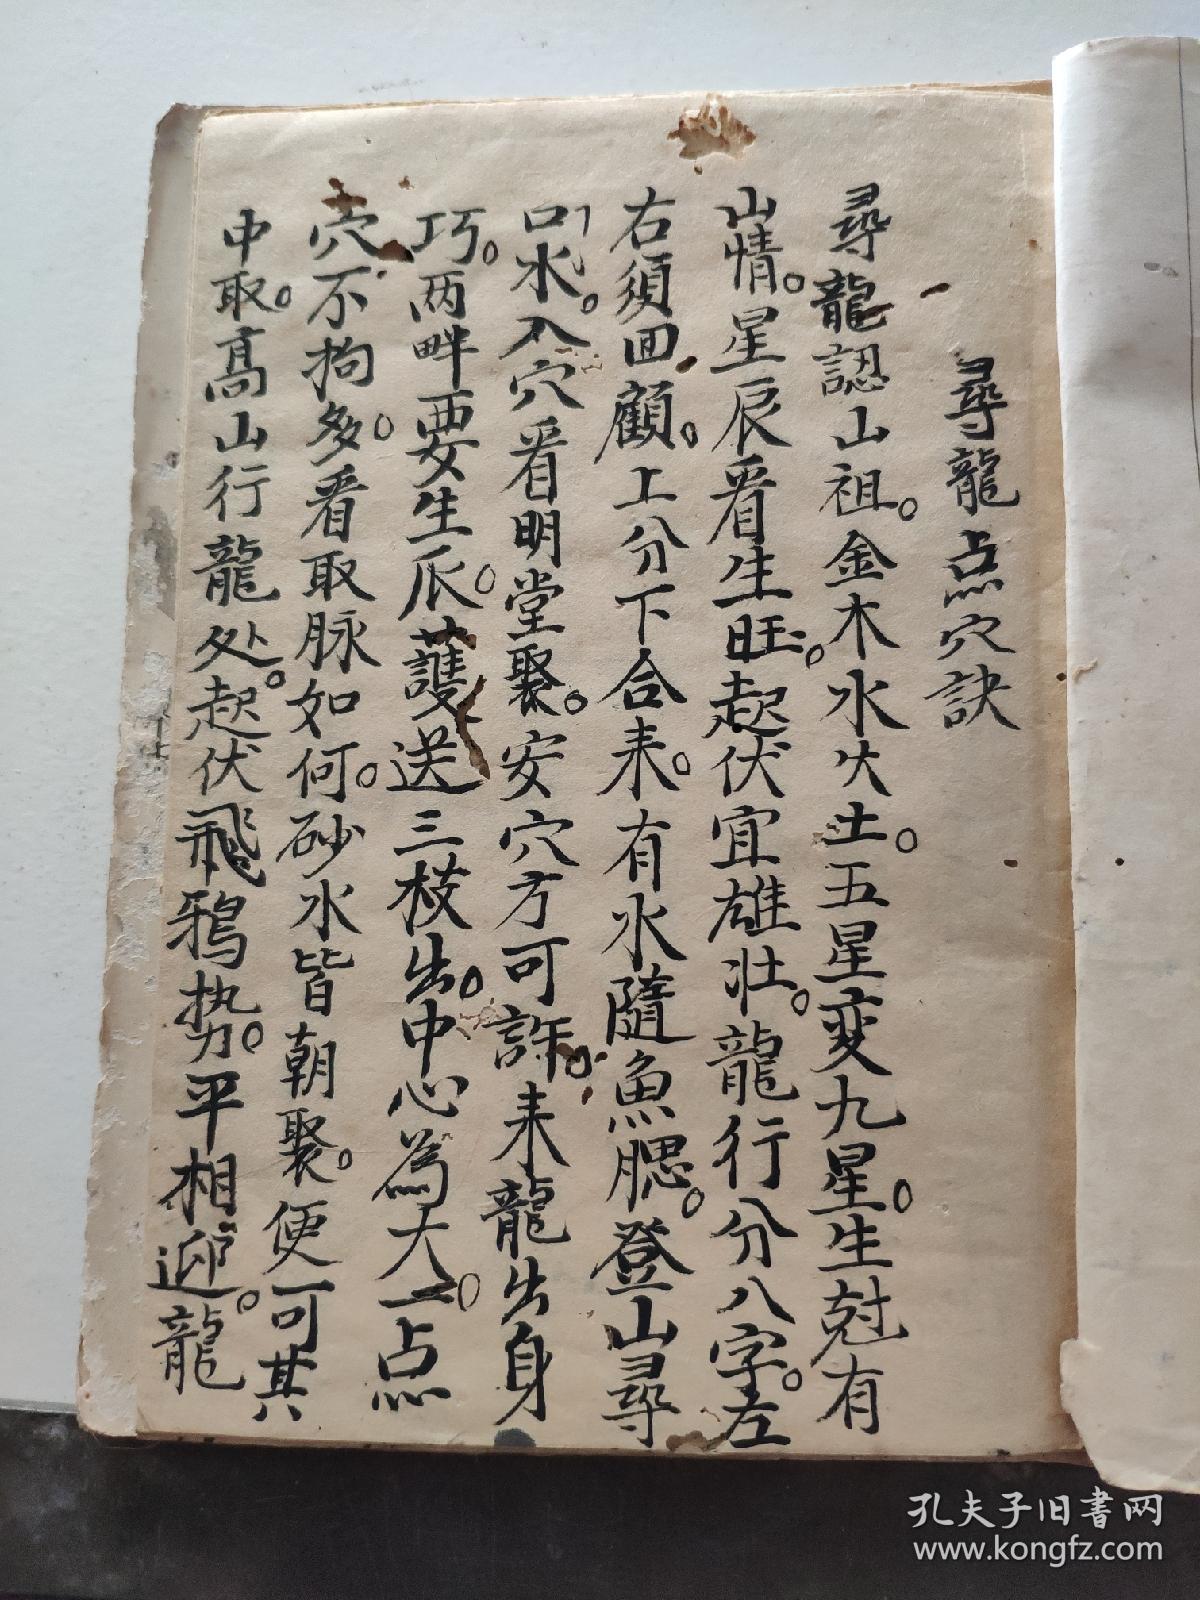 尋龍点穴訣
尋龍認山祖。金木水火土。五星変九星。生尅有
山情。星辰看生旺。起伏宜雄壮。龍行分八字。左
右須回顧。上分下合来。有水隨魚腮。登山尋
口水。入穴看明堂聚。安穴方可許。来龍出身
巧。两畔要生爪。護送三枝出。中心為大一。点
穴不拘多。看取脉如何。砂水皆朝聚。便可其
中取。髙山行龍处。起伏飛鴉势。平相迎。龍
孔夫子旧书网
www.kongfz.com